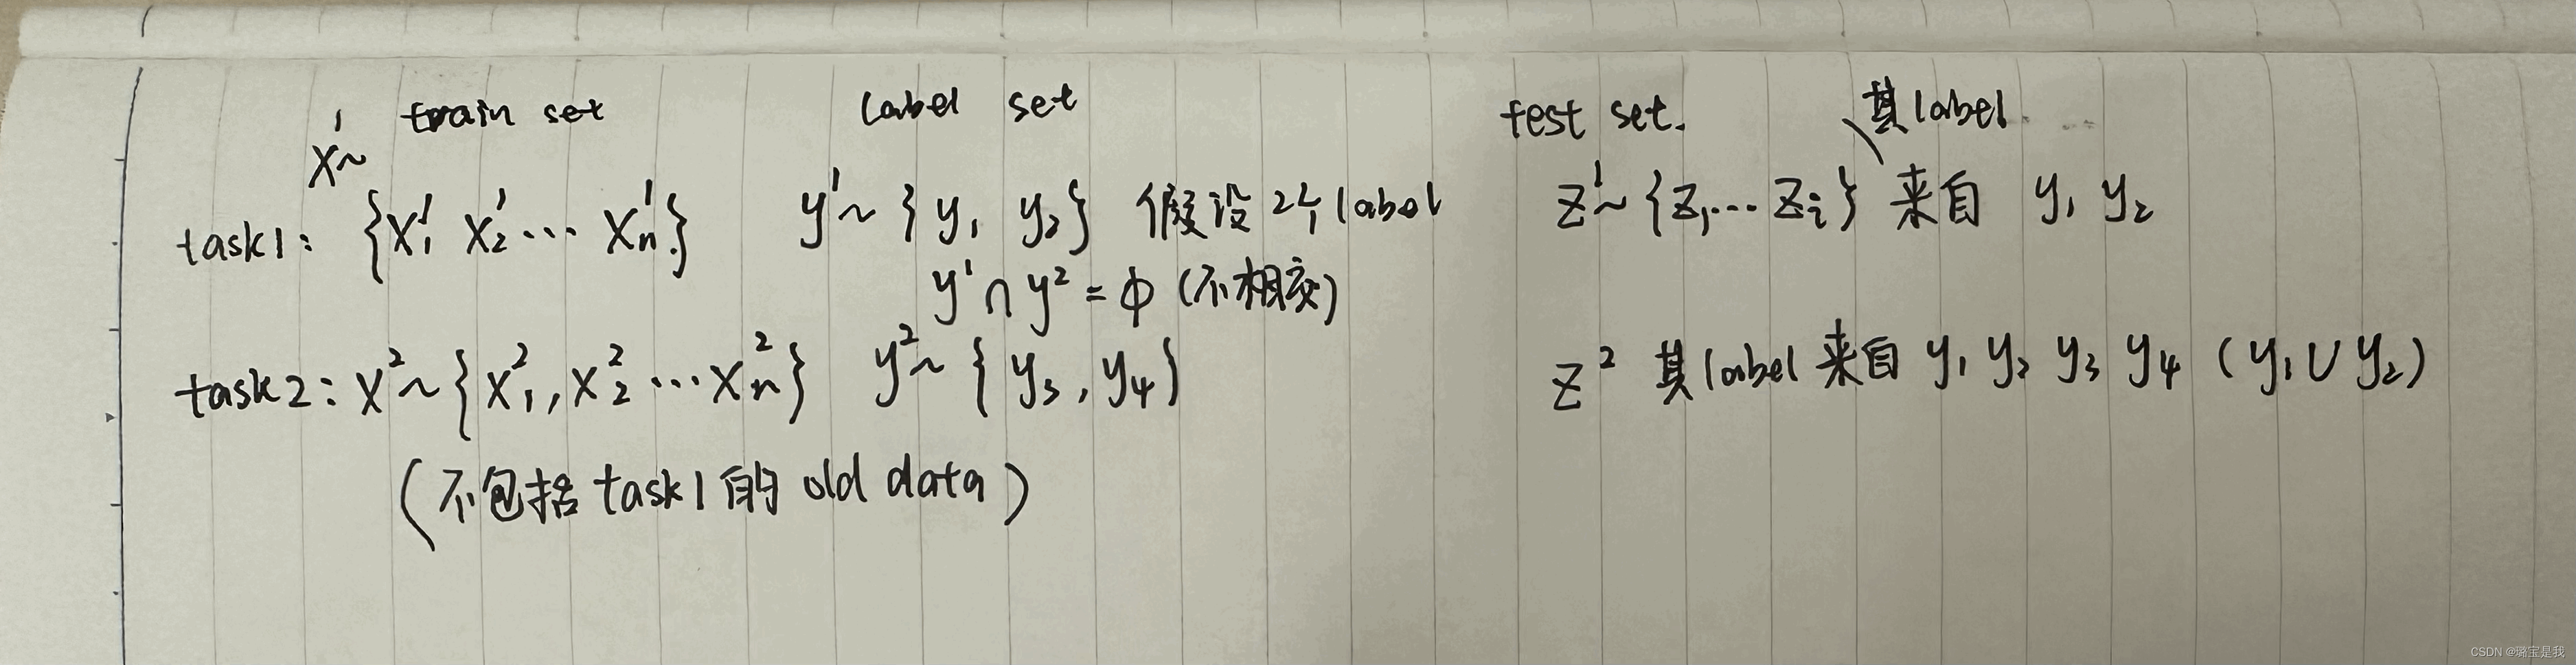 train set label set test set. 其label
X¹~
task1: {X₁¹ X₂¹ ··· Xₙ¹} y¹~{y₁ y₂} 假设2个label Z¹~{Z₁...Zᵢ} 来自 y₁ y₂
y¹∩y²=ϕ (不相交)
task2: X²~{X₁², X₂² ··· Xₙ²} y²~{y₃, y₄} Z² 其label来自 y₁ y₂ y₃ y₄ (y₁∪y₂)
(不包括task1的old data)
CSDN @璐宝是我